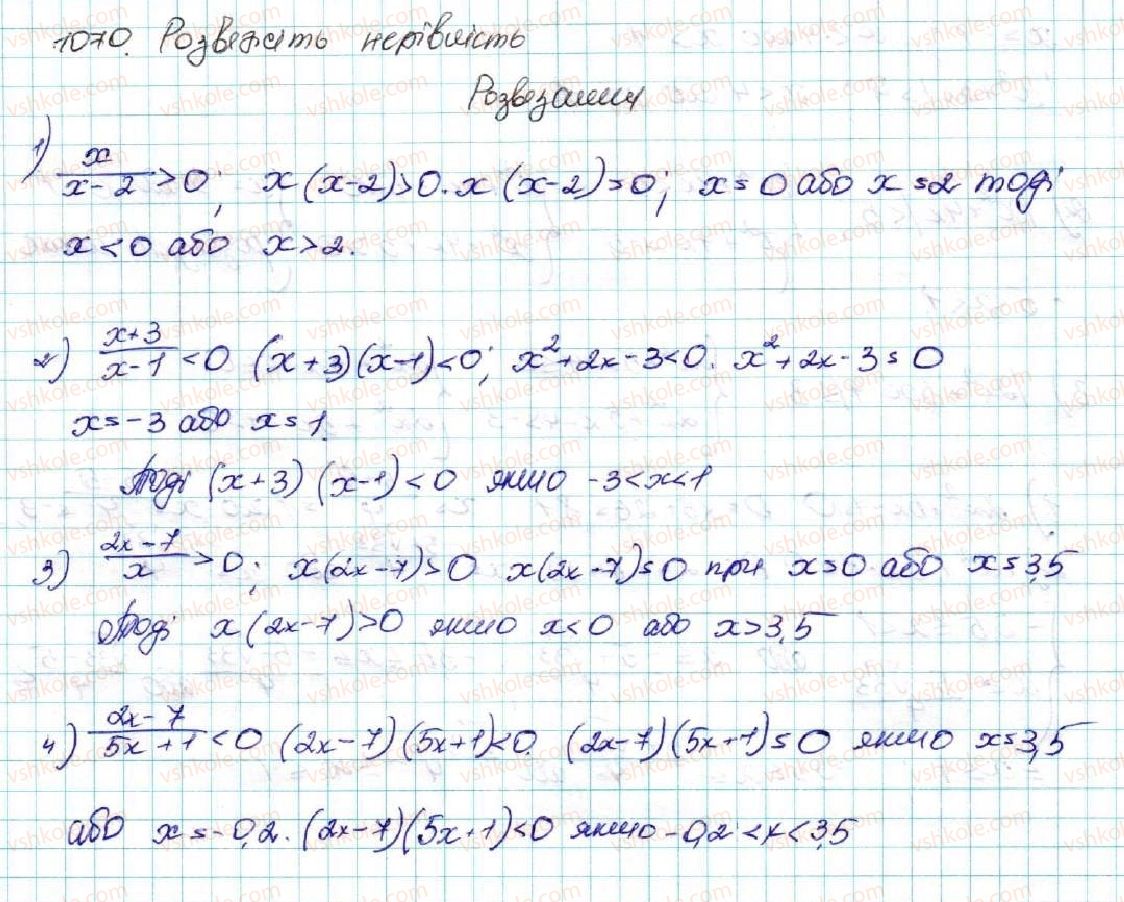 1070. Розвяжіть нерівність
Розвязання
1) x/(x-2) > 0; x(x-2)>0. x(x-2)=0; x=0 або x=2 тоді
x<0 або x>2.
2) (x+3)/(x-1) < 0 (x+3)(x-1)<0; x²+2x-3<0. x²+2x-3=0
x=-3 або x=1.
Тоді (x+3)(x-1)<0 якшо -3<x<1
3) (2x-7)/x > 0; x(2x-7)>0 x(2x-7)=0 при x=0 або x=3,5
Тоді x(2x-7)>0 якшо x<0 або x>3,5
4) (2x-7)/(5x+1) < 0 (2x-7)(5x+1)<0. (2x-7)(5x+1)=0 якшо x=3,5
або x=-0,2. (2x-7)(5x+1)<0 якшо -0,2<x<3,5